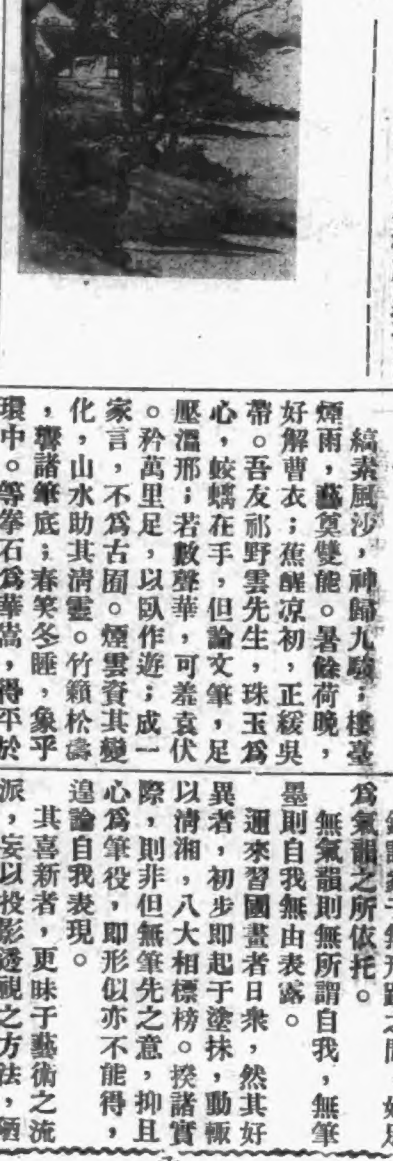 縞素風沙，神歸九駿；樓臺
煙雨，藝奠雙能。暑餘荷晚，
好解曹衣；蕉醒凉初，正緩吳
帶。吾友祁野雲先生，珠玉爲
心，蛟螭在手，但論文筆，足
壓溫邢；若數聲華，可羞袁伏
。矜萬里足，以臥作遊；成一
家言，不爲古囿。煙雲資其變
化，山水助其清靈。竹籟松濤
，響諸筆底；春笑冬睡，象乎
環中。等拳石爲華嵩，得平於
爲氣韻之所依托。
無氣韻則無所謂自我，無筆
墨則自我無由表露。
邇來習國畫者日衆，然其好
異者，初步即起于塗抹，動輒
以清湘，八大相標榜。揆諸實
際，則非但無筆先之意，抑且
心爲筆役，即形似亦不能得，
遑論自我表現。
其喜新者，更昧于藝術之流
派，妄以投影透視之方法，